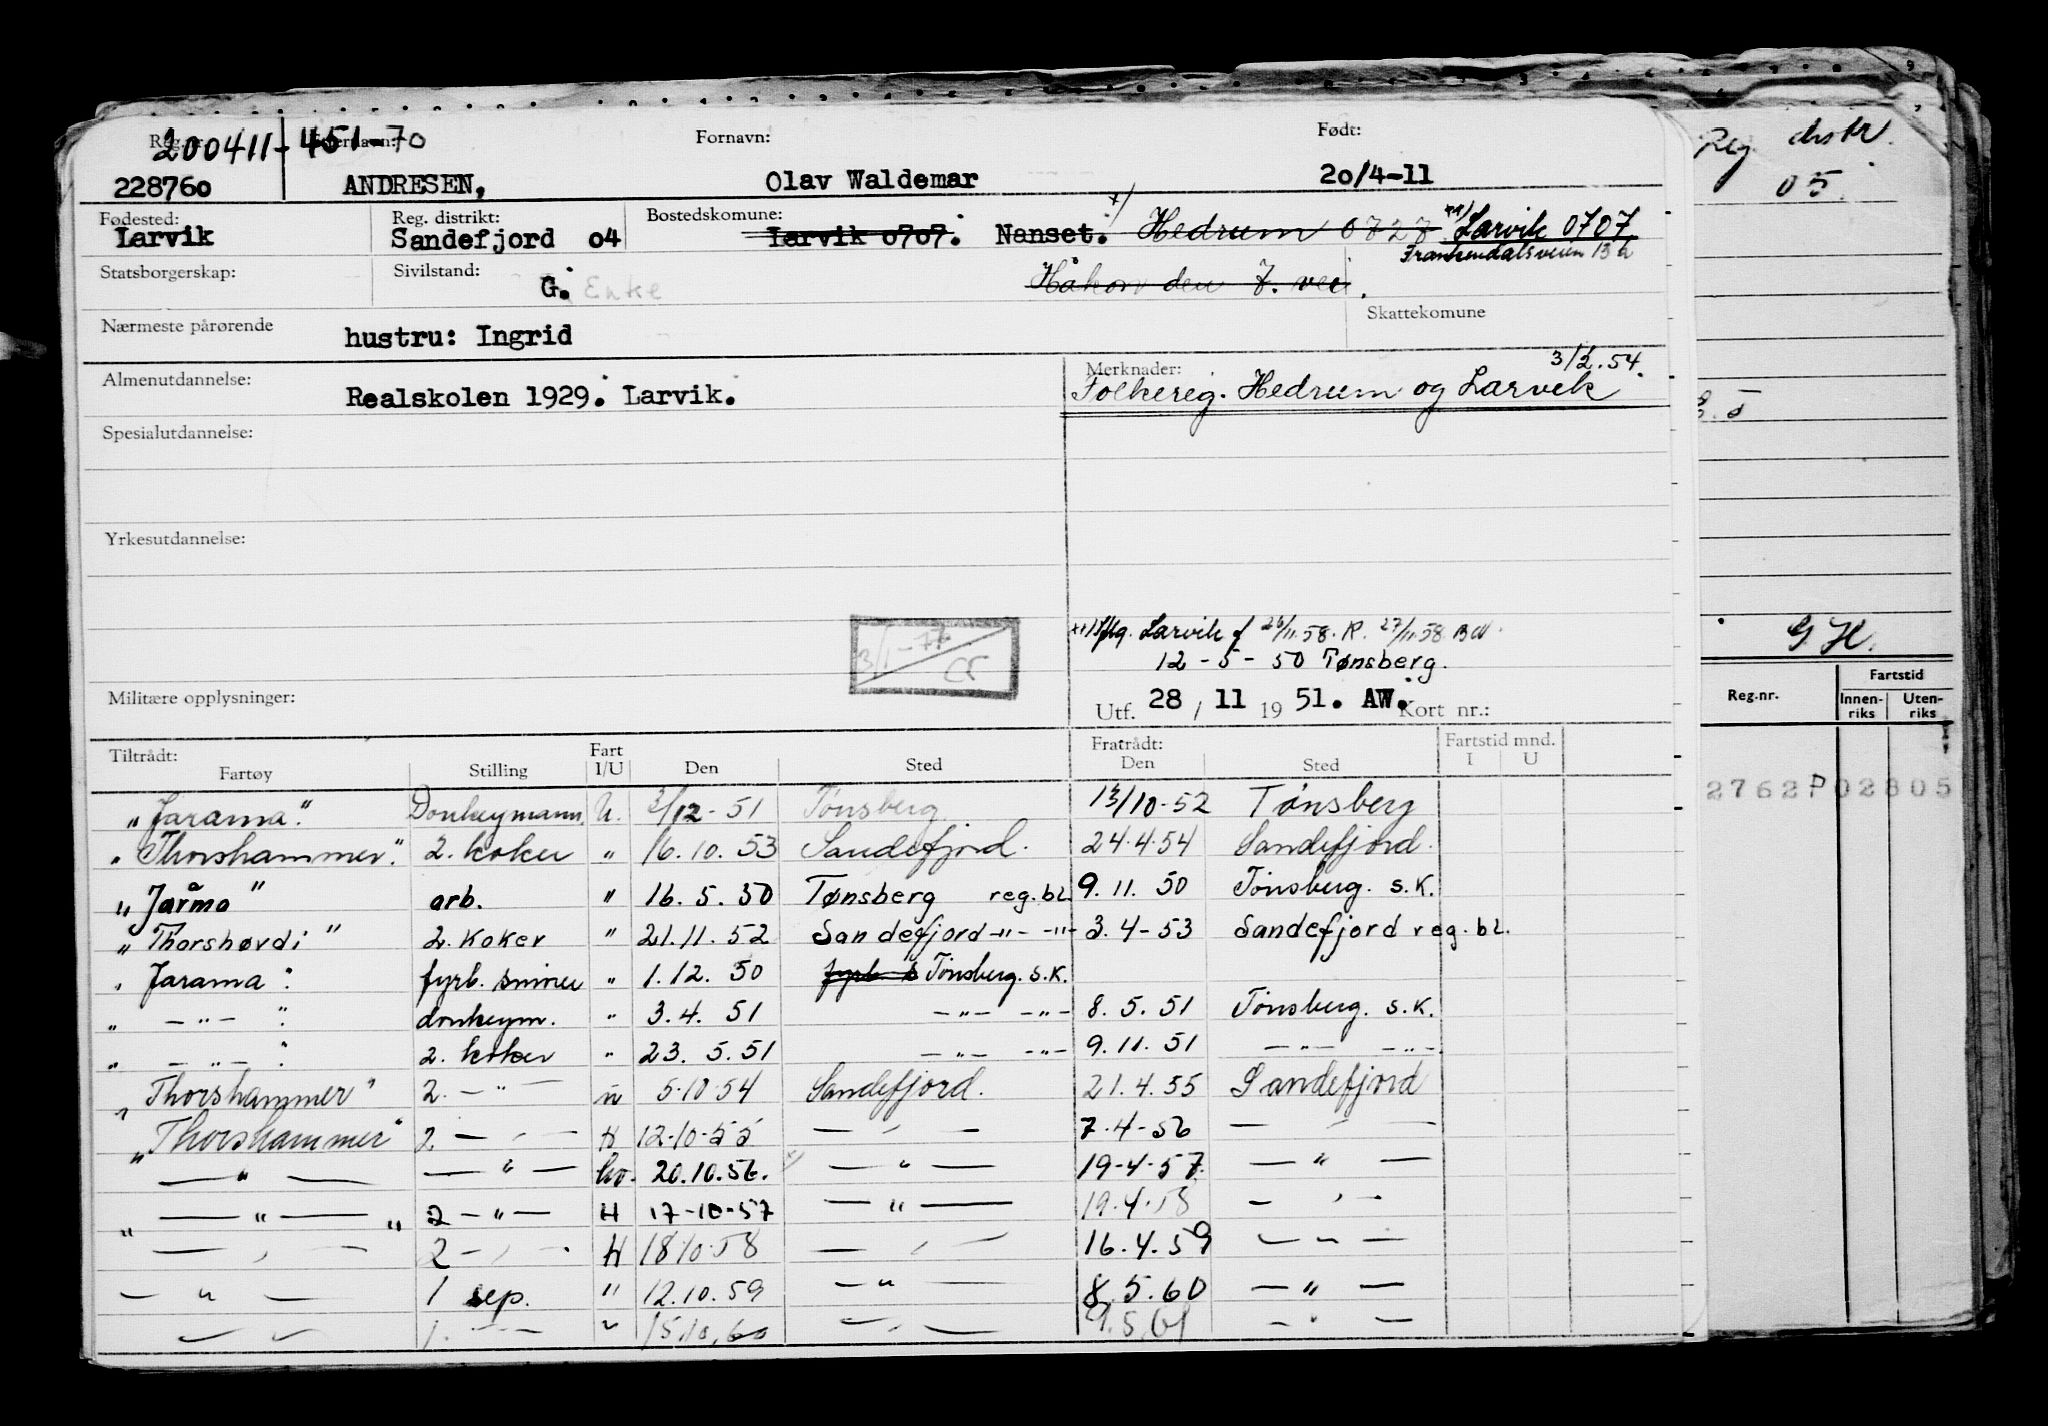 Reg. nr. Etternavn: Fornavn: Født:
200411-451-70
228760 ANDRESEN, Olav Waldemar 20/4-11
Fødested: Reg. distrikt: Bostedskomune:
Larvik Sandefjord 04 Larvik 0707. Nanset. x) Hedrum 0727 xx) Larvik 0707
13 a
Statsborgerskap: Sivilstand: G. Enke Håkon den 7. vei.
Nærmeste pårørende hustru: Ingrid Skattekomune
Almenutdannelse: Realskolen 1929. Larvik. Merknader: 3/2.54.
Folkereg. Hedrum og Larvik
Spesialutdannelse:
Yrkesutdannelse:
3/1-77
CS
Larvik f 26/11.58. R. 27/11.58
12-5-50 Tønsberg.
Militære opplysninger: Utf. 28/11 1951. AW. Kort nr.:
Tiltrådt: Fart Fratrådt: Fartstid mnd.
Fartøy Stilling I/U Den Sted Den Sted I U
"Jarama". Donkeymann. U. 2/12-51 Tønsberg. 13/10-52 Tønsberg
"Thorshammer". 2. koker " 16.10.53 Sandefjord. 24.4.54 Sandefjord.
"Jårmo" arb. " 16.5.50 Tønsberg reg.bl. 9.11.50 Tönsberg. s.k.
"Thorshøvdi" 2. koker " 21.11.52 Sandefjord -"- -"- 3.4-53 Sandefjord reg.bl.
" Jarama " fyrb. smører " 1.12.50 fyrb s Tönsberg. s.k.
" -"- " donkeym. " 3.4.51 -"- -"- 8.5.51 Tönsberg. s.k.
" -"- " 2. koker " 23.5.51 -"- -"- 9.11.51 -"- -"-
"Thorshammer" 2. -"- u 5.10.54 Sandefjord. 21.4.55 Sandefjord
"Thorshammer" 2 -"- H 12-10-55 -"- 7-4-56 -"-
-"- -"- hv. 20.10.56. -"- 19-4-57. -"-
" -"- " 2 -"- H 17-10-57 -"- 19.4.58 -"-
-"- 2 -"- H 18.10.58 -"- 16.4.59 -"-
-"- 1 sep. " 12.10.59 -"- 8.5.60 -"-
-"- 1. -"- " 15.10.60 -"- 9.5.61 -"-
Reg distr.
05.
G H.
Reg.nr. Fartstid
Innen-riks Uten-riks
2762P02805